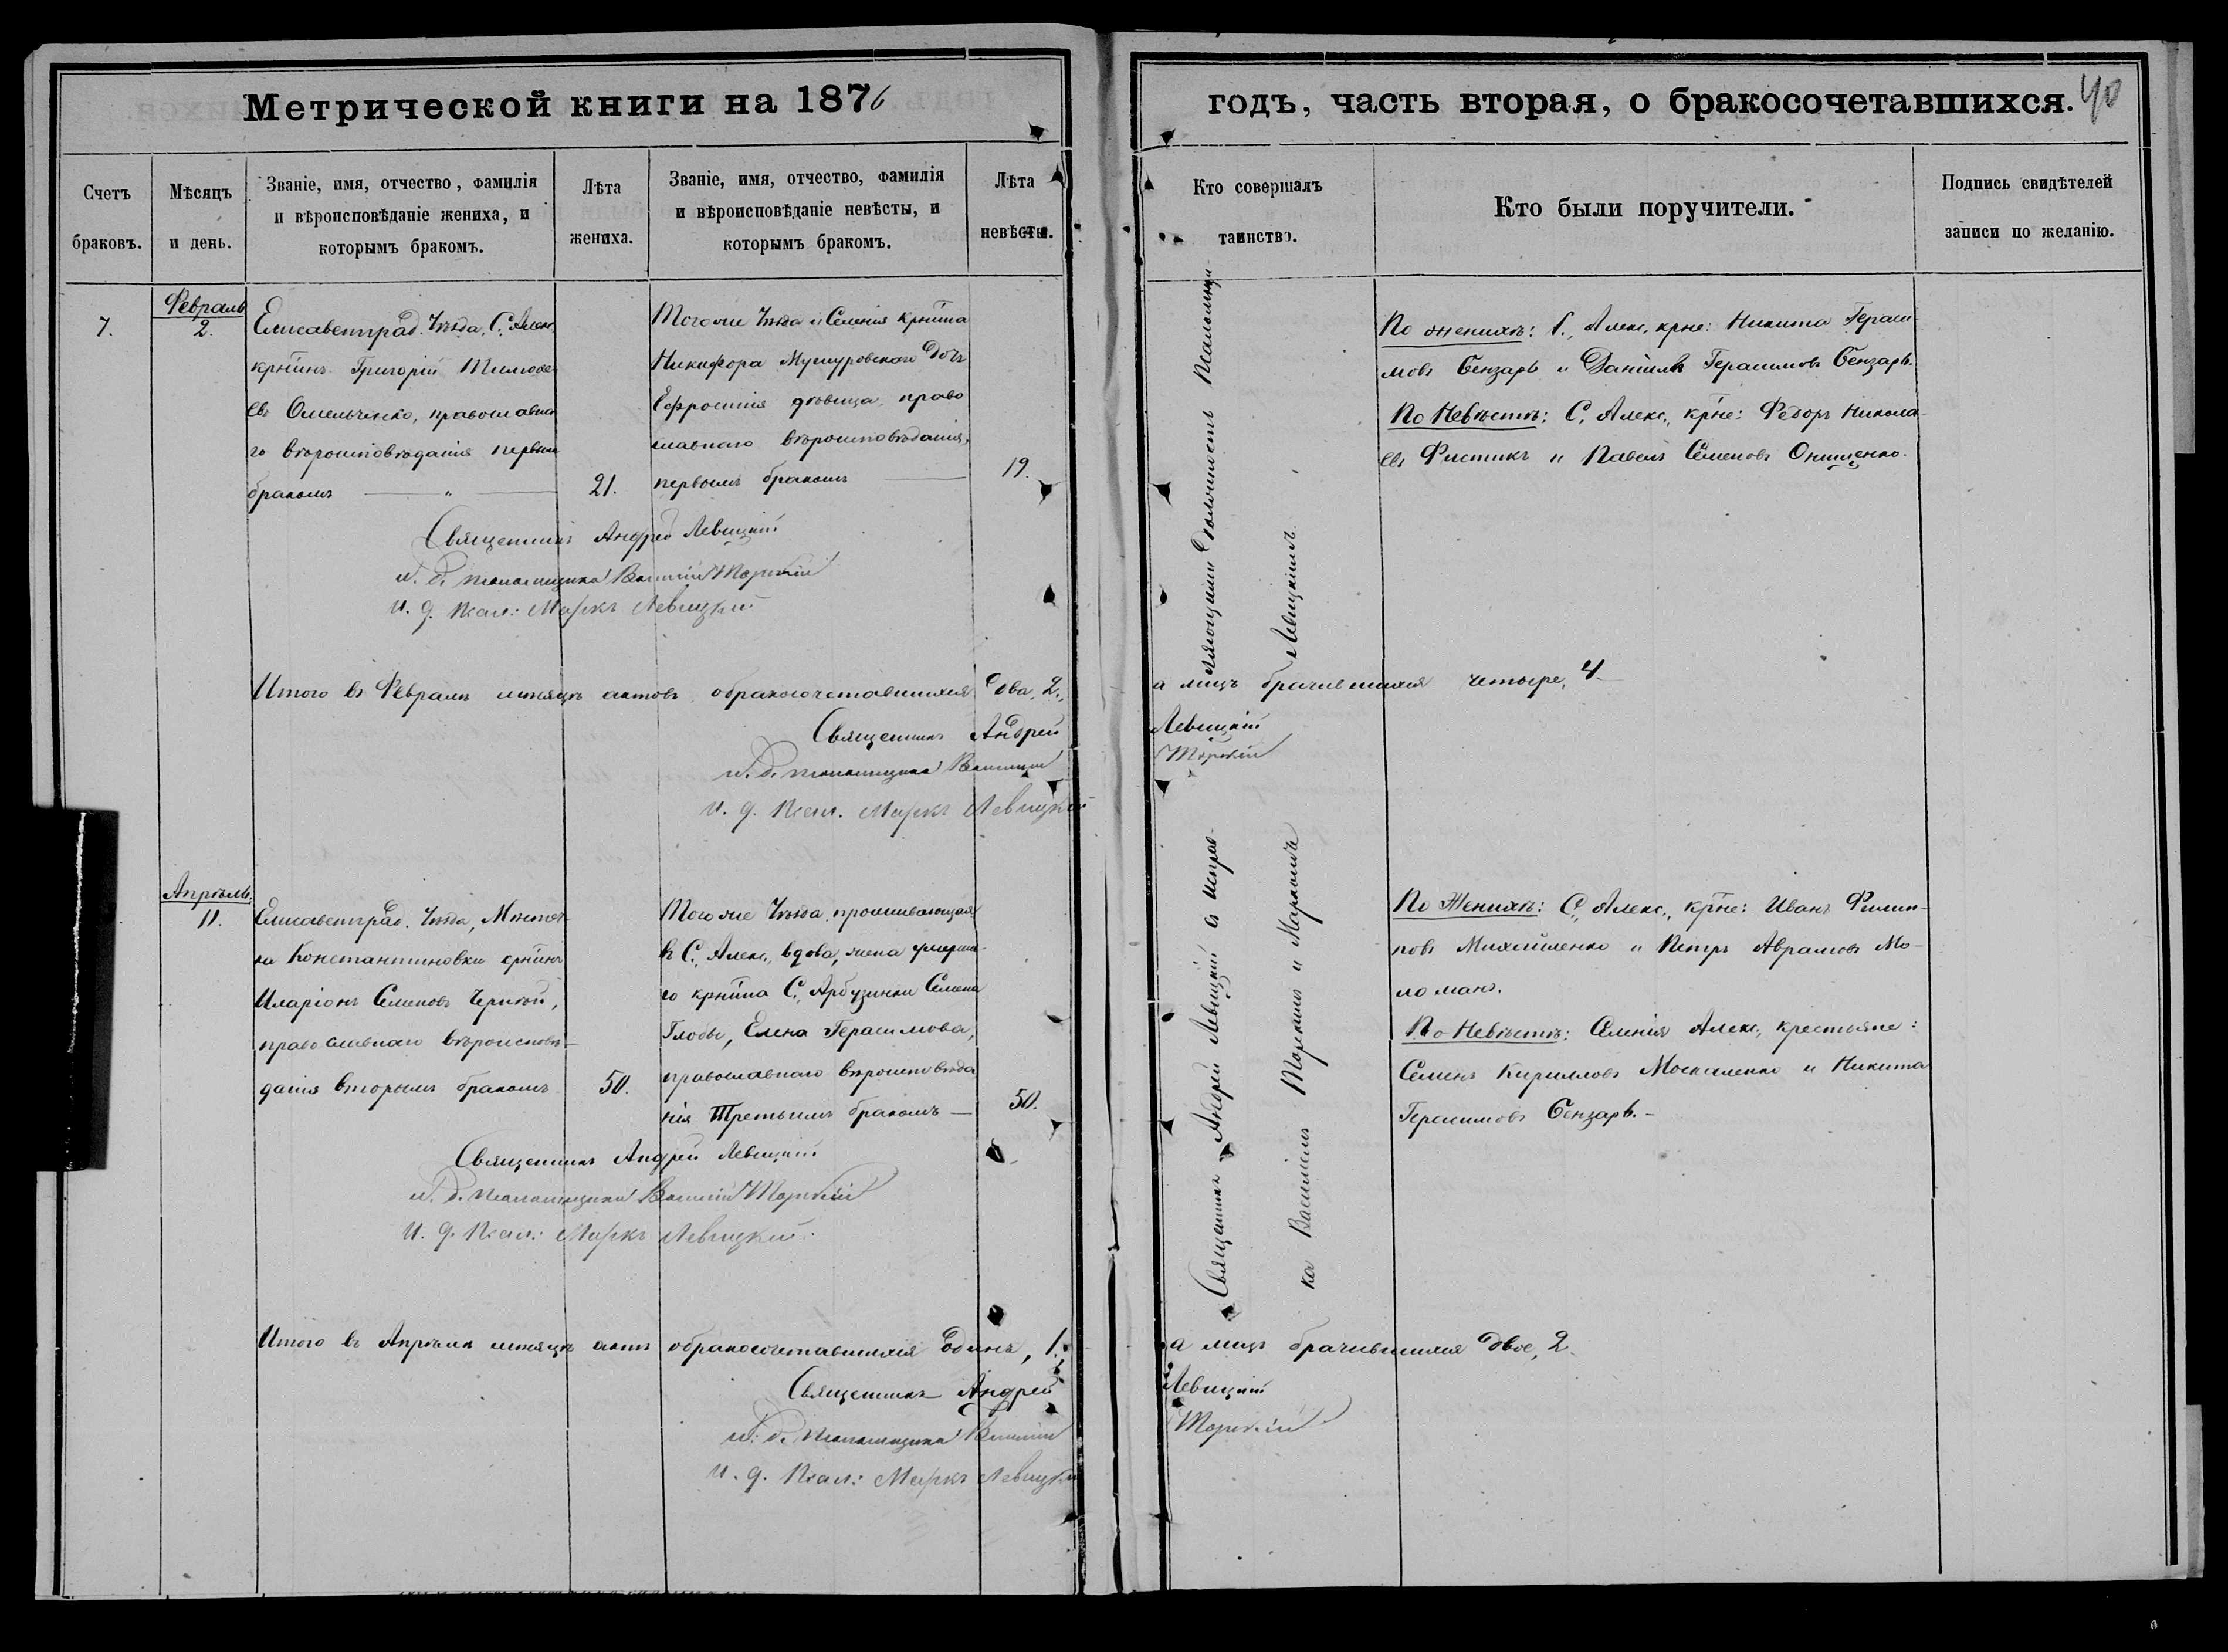 Метрической книги на 1876
годъ, часть вторая, о бракосочетавшихся.
40
Счетъ браковъ.
Мѣсяцъ и день.
Званіе, имя, отчество, фамилія
и вѣроисповѣданіе жениха, и
которымъ бракомъ.
Лѣта
жениха.
Званіе, имя, отчество, фамилія
и вѣроисповѣданіе невѣсты, и
которымъ бракомъ.
Лѣта
невѣсты.
Кто совершалъ
таинство.
Кто были поручители.
Подпись свидѣтелей
записи по желанію.
7.
Февраль
2.
Елисаветград. Уѣзда, С. Алек.
крнинъ Григорій Тимофе-
евъ Омельченко, православна-
го вѣроисповѣданія первым
бракомъ
21.
Тогоже Уѣзда и Селенія крнина
Никифора Мушуровскаго дочь
Ефросинія дѣвица, право
славнаго вѣроисповѣданія,
первымъ бракомъ
19.
По женихѣ: С., Алекс, крне: Никита Гераси-
мовъ Бензарь и Даніилъ Герасимовъ Бензарь.
По Невѣстѣ: С, Алекс., крне: Федоръ Никола-
евъ Фистикъ и Павелъ Семеновъ Онищенко.
Священникъ Андрей Левицкій
И. д. псаломщика Василій Торскій
И. д. Псал: Маркъ Левицкий
Итого въ Февралѣ мѣсяцѣ актовъ обракосочетавшихся Два, 2.,
а лицъ брачившихся четыре, 4
Священникъ Андрей Левицкій
И. д. псаломщика Василий Торскій
И. д. Псал. Маркъ Левицкий
Апрѣль.
11.
Елисаветград. Уѣзда, Мѣстеч-
ка Константиновки крнинъ
Иларіонъ Семеновъ Черной,
православнаго вѣроисповѣ-
данія вторымъ бракомъ
50.
Того же Уѣзда, проживающая
въ С., Алек., вдова, жена умерша-
го крнина С., Арбузинки Семена
Глобы, Елена Герасимова,
православнаго вѣроисповѣда
нія Третьимъ бракомъ
50.
Священникъ Андрей Левицкій съ исправ-
ляющими должность Псаломщи-
ка Василіемъ Торскимъ и Маркомъ
Левицкимъ.
По Женихѣ: С., Алекс., крне: Иванъ Филип-
повъ Михайленко и Петръ Аврамовъ Мо-
ломанъ.
По Невѣстѣ: Селенія Алек., крестьяне:
Семенъ Кирилловъ Москаленко и Никита
Герасимовъ Бензарь.
Священникъ Андрей Левицкій
И. д. псаломщика Василій Торскій
И. д. Псал: Маркъ Левицкий
Итого въ Апрѣлѣ мѣсяцѣ актъ обракосочетавшихся Одинъ, 1.
а лицъ брачившихся двое, 2.
Священникъ Андрей Левицкій
И. д. псаломщика Василий Торскій
И. д. Псал: Маркъ Левицкий